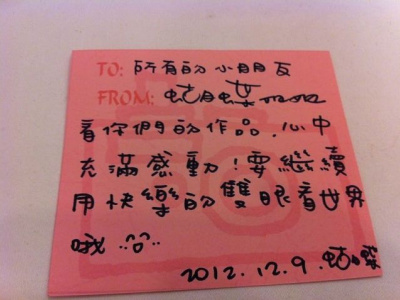 TO: 所有的小朋友
FROM: 蛙蝶姐姐
看你們的作品,心中
充滿感動!要繼續
用快樂的雙眼看世界
哦
2012.12.9.